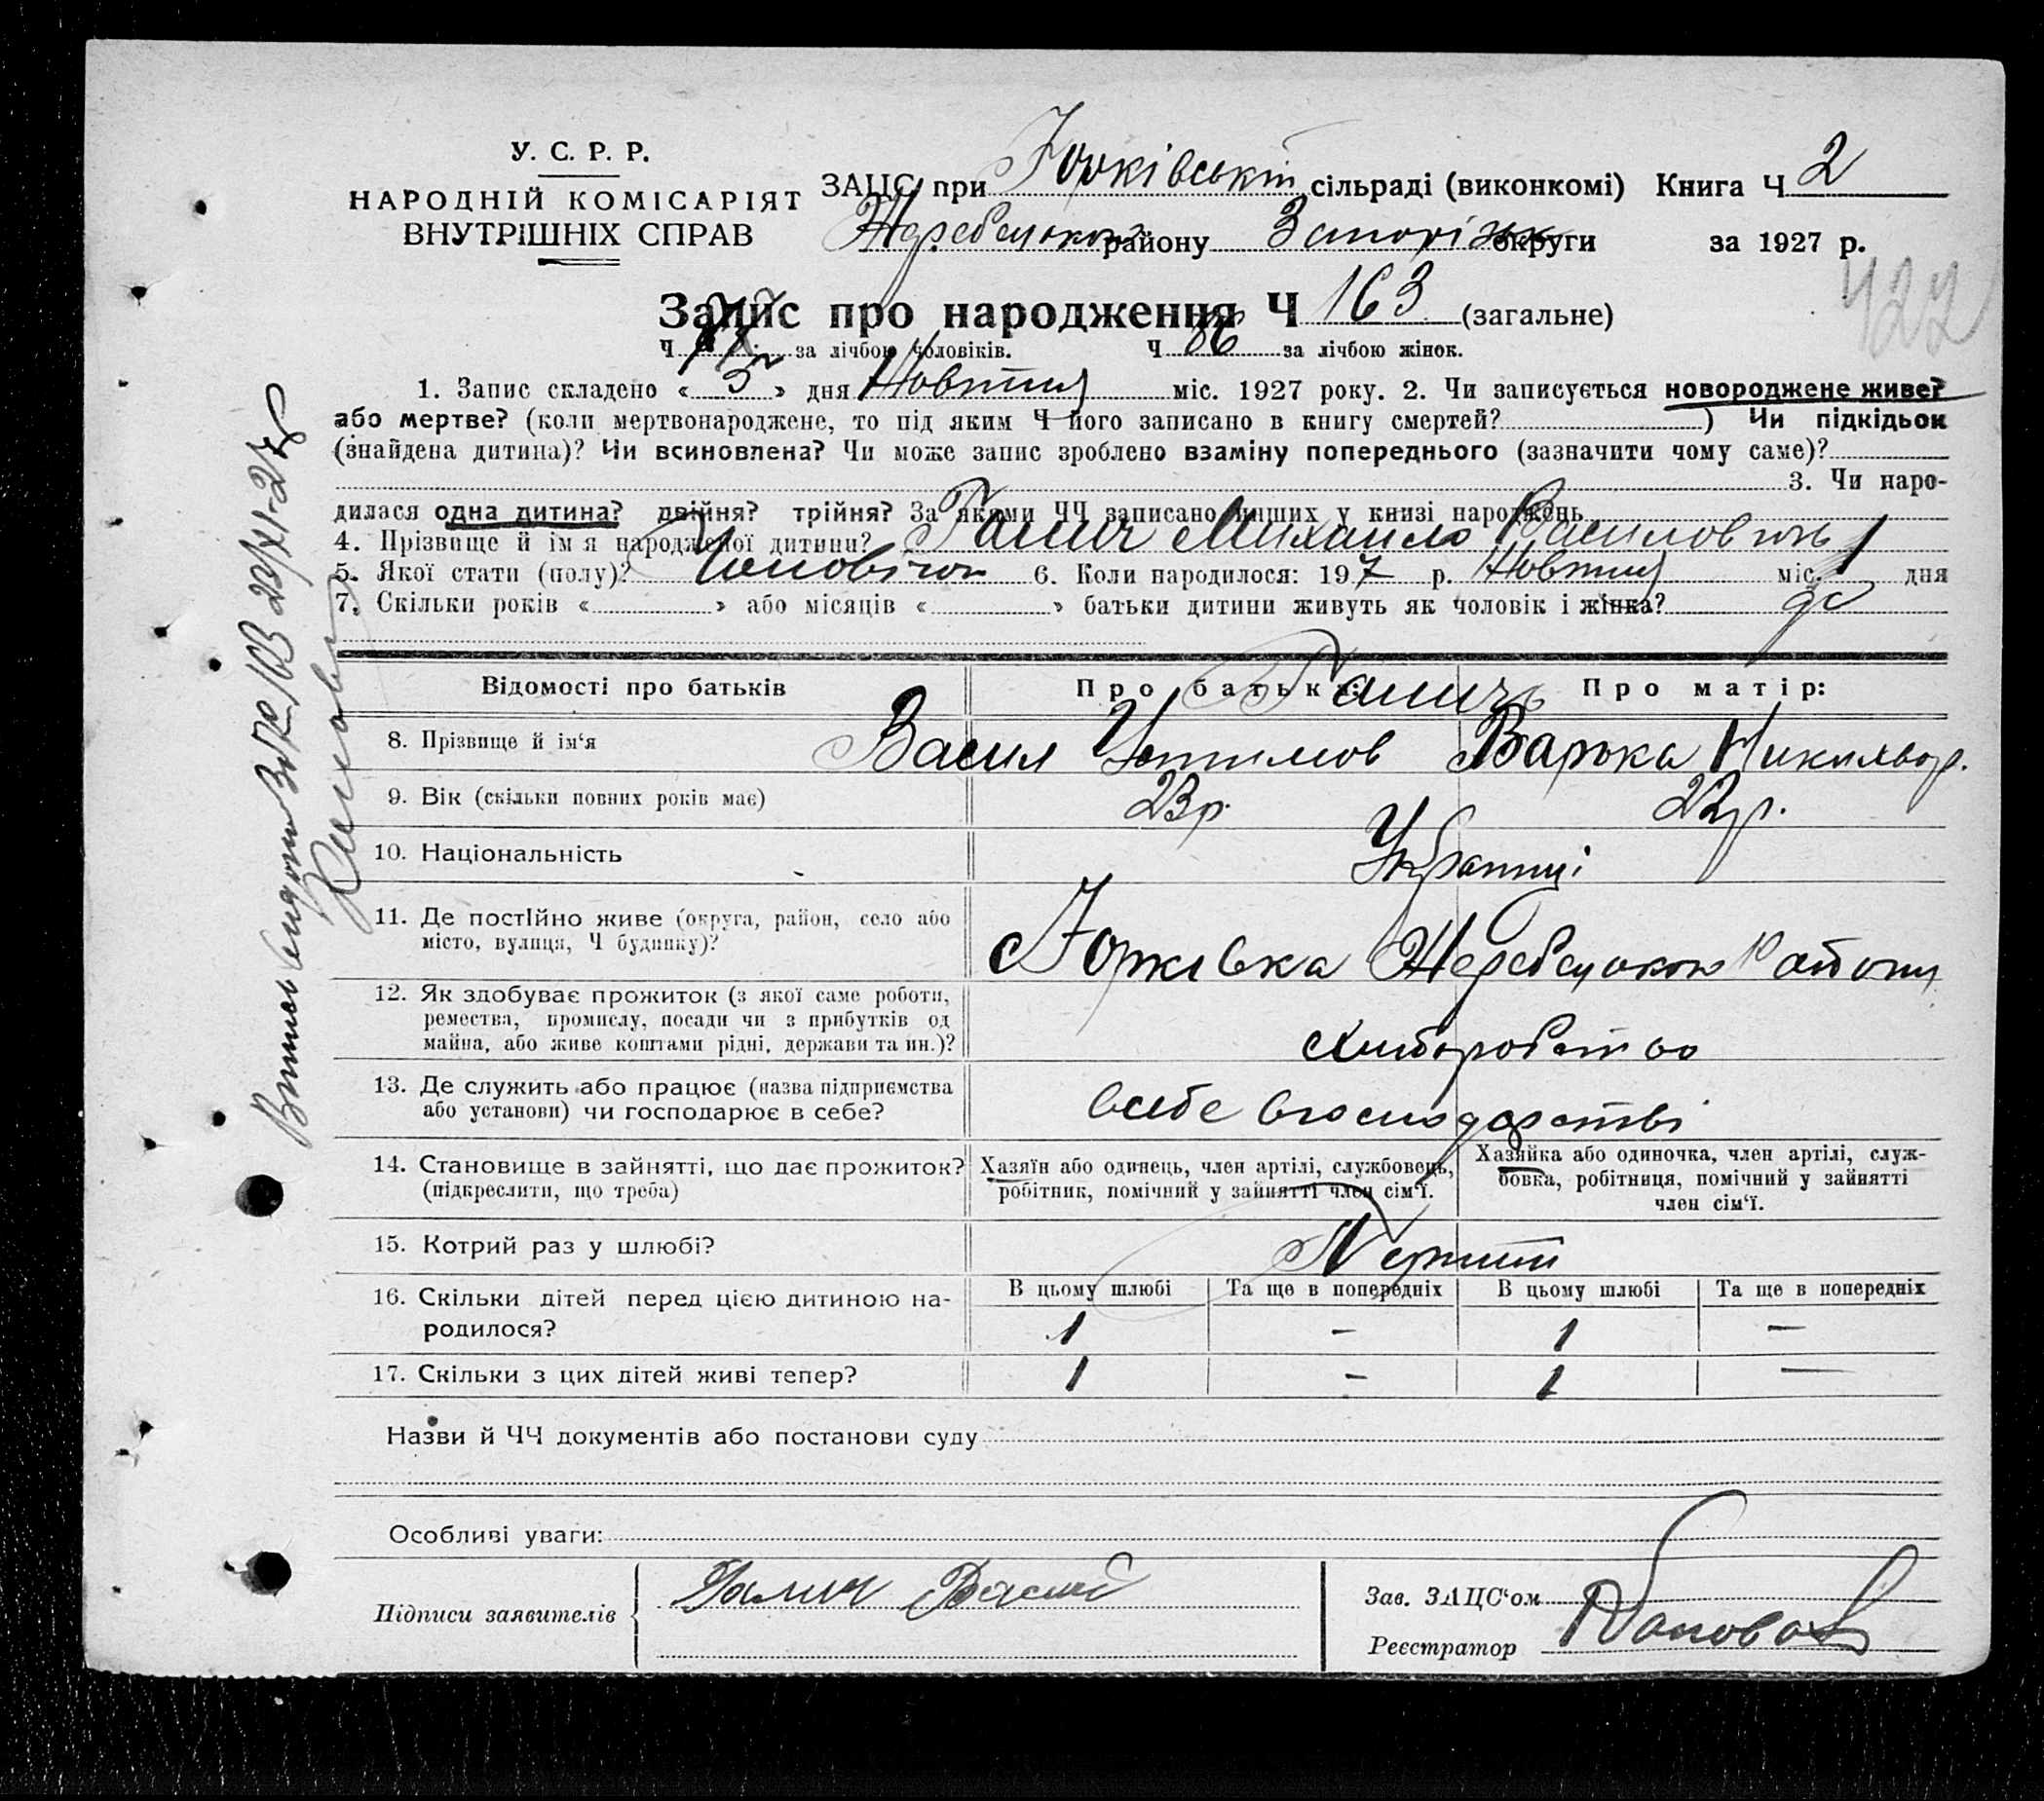 У. С. Р. Р.
НАРОДНІЙ КОМІСАРІЯТ
ВНУТРІШНІХ СПРАВ
ЗАЦС при Юрківській сільраді (виконкомі) Книга Ч 2
Жеребецького району Запоріжж округи за 1927 р.
422
Запис про народження Ч 163 (загальне)
Ч за лічбою чоловіків. Ч 86 за лічбою жінок.
1. Запис складено « 3 » дня Жовтня міс. 1927 року. 2. Чи записується новороджене живе?
або мертве? (коли мертвонароджене, то під яким Ч його записано в книгу смертей? ) Чи підкідьок
(знайдена дитина)? Чи всиновлена? Чи може запис зроблено взаміну попереднього (зазначити чому саме)?
3. Чи наро-
дилася одна дитина? двійня? трійня? За якими ЧЧ записано инших у книзі народжень
4. Прізвище й імя народженої дитини? Галич Михаило Василовичь
5. Якої стати (полу)? Чоловічої 6. Коли народилося: 197 р. Жовтня міс. 1 дня
7. Скільки років « » або місяців « » батьки дитини живуть як чоловік і жінка?
Відомості про батьків
Про батька: Про матір:
Галичь
8. Прізвище й ім‘я Васил Устимов Варька
9. Вік (скільки повних років має) 23р. 22р.
10. Національність Українці
11. Де постійно живе (округа, район, село або
місто, вулиця, Ч будинку)?
с Юрківка Жеребецького району
12. Як здобуває прожиток (з якої саме роботи,
ремества, промислу, посади чи з прибутків од
майна, або живе коштами рідні, держави та ин.)?
хліборобство
13. Де служить або працює (назва підприємства
або установи) чи господарює в себе?
всебе вгосподарстві
14. Становище в зайнятті, що дає прожиток?
(підкреслити, що треба)
Хазяїн або одинець, член артілі, службовець,
робітник, помічний у зайнятті член сім‘ї.
Хазяйка або одиночка, член артілі, служ-
бовка, робітниця, помічний у зайнятті
член сім‘ї.
15. Котрий раз у шлюбі? Перший
16. Скільки дітей перед цією дитиною на-
родилося?
В цьому шлюбі Та ще в попередніх В цьому шлюбі Та ще в попередніх
1 – 1 –
17. Скільки з цих дітей живі тепер? 1 – 1 –
Назви й ЧЧ документів або постанови суду
Особливі уваги:
Підписи заявителів Галич Василь
Зав. ЗАЦС‘ом
Реєстратор